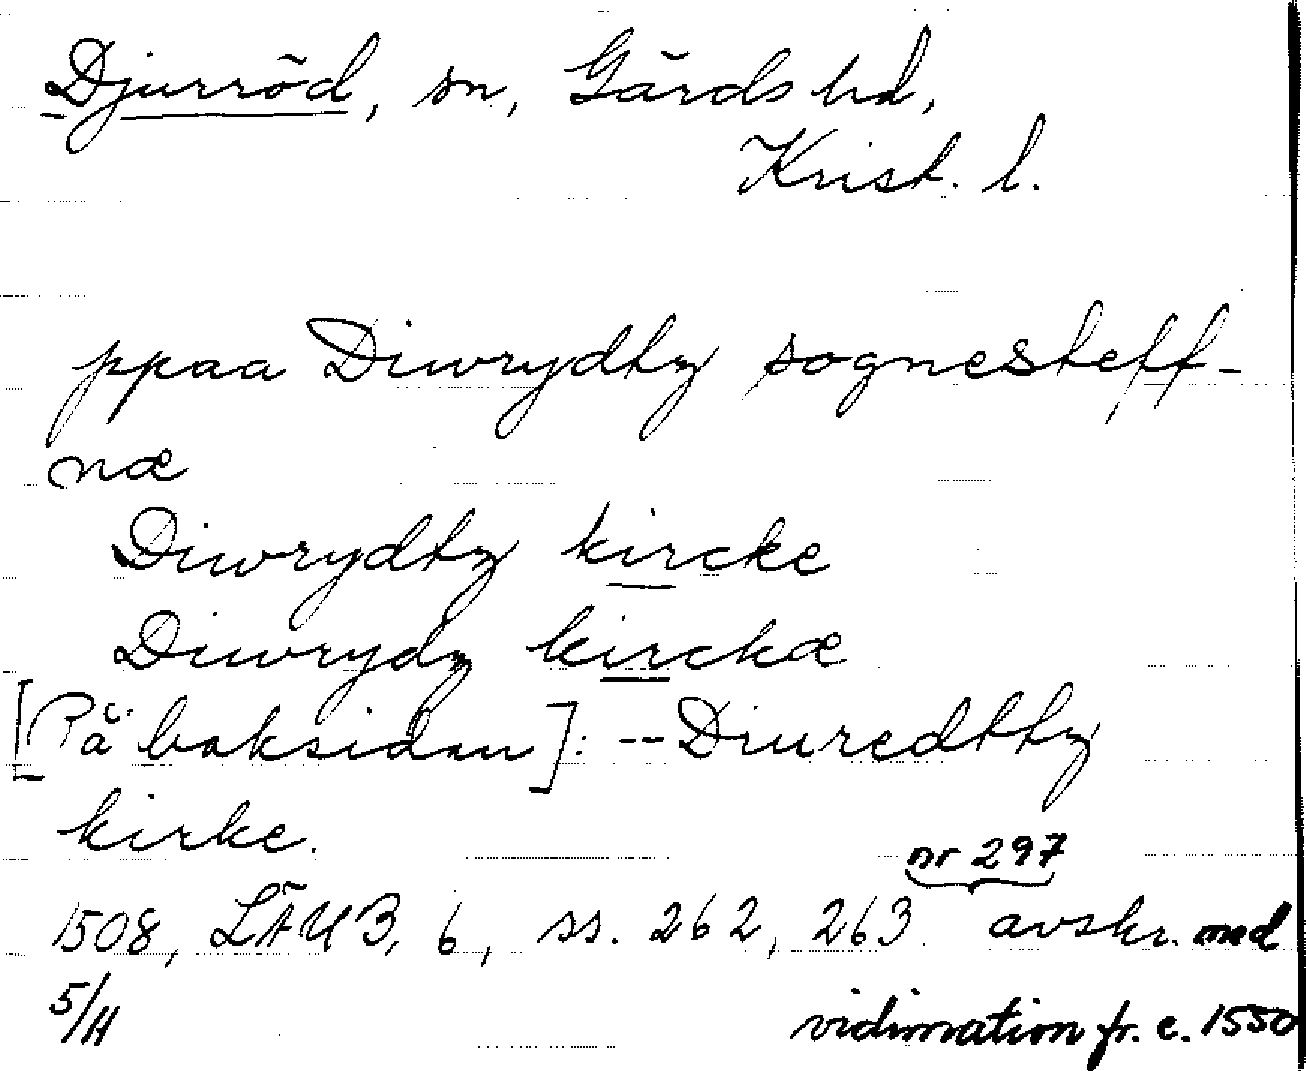 Djurröd, sn, Gärds hd,
Krist. l.
ppaa Diwrydtz sognesteff-
næ
Diwrydtz kircke
Diwrydz kirckæ
[På baksidan]: -- Diuredttz
kirke.
nr 297
1508, LÄUB, 6, ss. 262, 263. avskr. med
5/11 vidimation fr. c. 1550